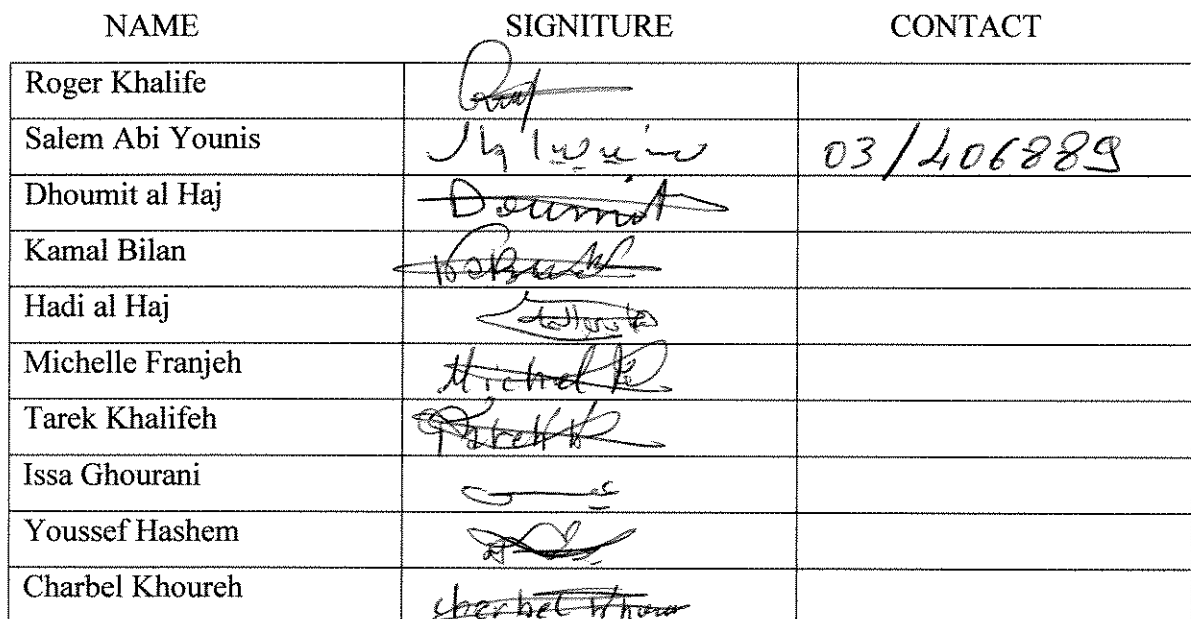 NAME SIGNITURE CONTACT
Roger Khalife
Salem Abi Younis 03/406889
Dhoumit al Haj Doumit
Kamal Bilan
Hadi al Haj
Michelle Franjeh Michel
Tarek Khalifeh Tarek K
Issa Ghourani
Youssef Hashem
Charbel Khoureh cherbel